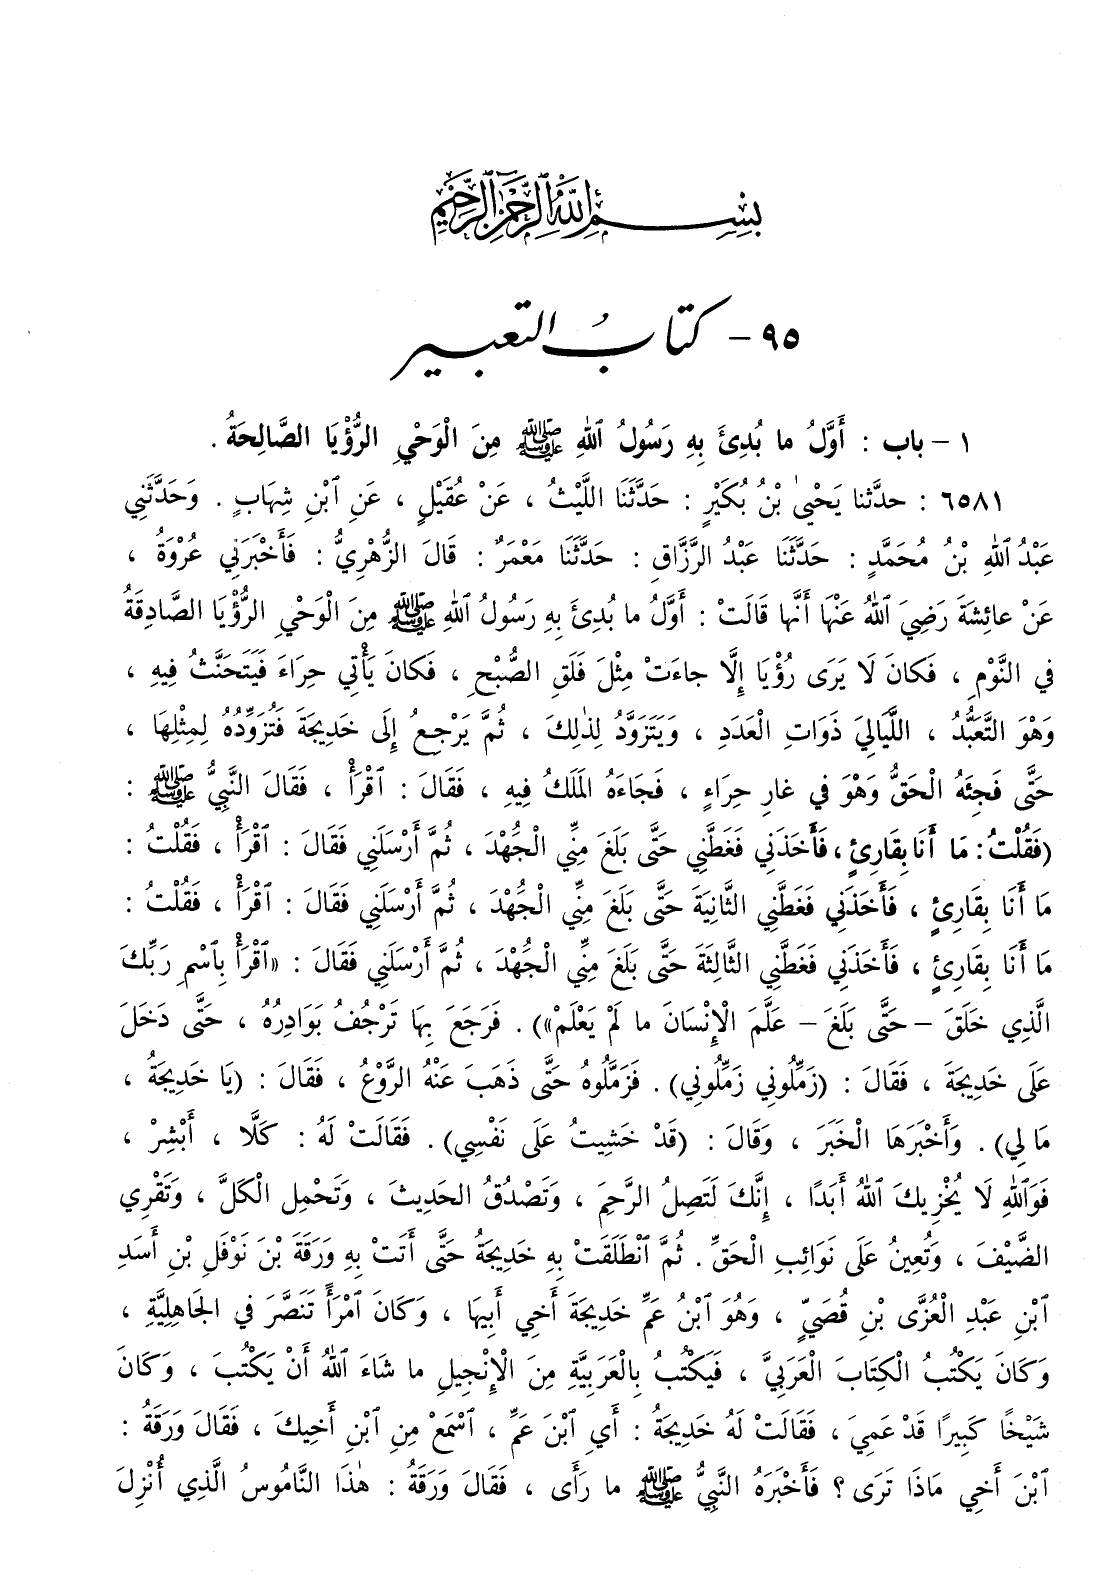 بِسْمِ ٱللَّهِ ٱلرَّحْمَٰنِ ٱلرَّحِيمِ
٩٥ – كتابُ التعبير
١ – باب : أَوَّلُ ما بُدِئَ بِهِ رَسُولُ ٱللهِ ﷺ مِنَ الْوَحْيِ الرُّؤْيَا الصَّالِحَةُ .
٦٥٨١ : حدَّثنا يَحْيىٰ بْنُ بُكَيْرٍ : حَدَّثَنَا اللَّيْثُ ، عَنْ عُقَيْلٍ ، عَنِ ٱبْنِ شِهَابٍ . وَحَدَّثَنِي
عَبْدُ ٱللهِ بْنُ مُحَمَّدٍ : حَدَّثَنَا عَبْدُ الرَّزَّاقِ : حَدَّثَنَا مَعْمَرٌ : قَالَ الزُّهْرِيُّ : فَأَخْبَرَنِي عُرْوَةُ ،
عَنْ عائِشَةَ رَضِيَ ٱللهُ عَنْهَا أَنَّها قَالَتْ : أَوَّلُ ما بُدِئَ بِهِ رَسُولُ ٱللهِ ﷺ مِنَ الْوَحْيِ الرُّؤْيَا الصَّادِقَةُ
في النَّوْمِ ، فَكانَ لَا يَرَى رُؤْيَا إِلَّا جاءَتْ مِثْلَ فَلَقِ الصُّبْحِ ، فَكانَ يَأْتِي حِرَاءَ فَيَتَحَنَّثُ فِيهِ ،
وَهْوَ التَّعَبُّدُ ، اللَّيَالِيَ ذَوَاتِ الْعَدَدِ ، وَيَتَزَوَّدُ لِذٰلِكَ ، ثُمَّ يَرْجِعُ إِلَى خَدِيجَةَ فَتُزَوِّدُهُ لِمِثْلِهَا ،
حَتَّى فَجِئَهُ الْحَقُّ وَهْوَ في غارِ حِرَاءٍ ، فَجَاءَهُ المَلَكُ فِيهِ ، فَقَالَ : ٱقْرَأْ ، فَقَالَ النَّبِيُّ ﷺ :
(فَقُلْتُ : مَا أَنَا بِقَارِئٍ ، فَأَخَذَنِي فَغَطَّنِي حَتَّى بَلَغَ مِنِّي الْجَهْدَ ، ثُمَّ أَرْسَلَنِي فَقَالَ : ٱقْرَأْ ، فَقُلْتُ :
مَا أَنَا بِقَارِئٍ ، فَأَخَذَنِي فَغَطَّنِي الثَّانِيَةَ حَتَّى بَلَغَ مِنِّي الْجَهْدَ ، ثُمَّ أَرْسَلَنِي فَقَالَ : ٱقْرَأْ ، فَقُلْتُ :
مَا أَنَا بِقَارِئٍ ، فَأَخَذَنِي فَغَطَّنِي الثَّالِثَةَ حَتَّى بَلَغَ مِنِّي الْجَهْدَ ، ثُمَّ أَرْسَلَنِي فَقَالَ : «ٱقْرَأْ بِٱسْمِ رَبِّكَ
الَّذِي خَلَقَ – حَتَّى بَلَغَ – عَلَّمَ الْإِنْسَانَ ما لَمْ يَعْلَمْ») . فَرَجَعَ بِهَا تَرْجُفُ بَوَادِرُهُ ، حَتَّى دَخَلَ
عَلَى خَدِيجَةَ ، فَقَالَ : (زَمِّلُونِي زَمِّلُونِي) . فَزَمَّلُوهُ حَتَّى ذَهَبَ عَنْهُ الرَّوْعُ ، فَقَالَ : (يَا خَدِيجَةُ ،
مَا لِي) . وَأَخْبَرَهَا الْخَبَرَ ، وَقَالَ : (قَدْ خَشِيتُ عَلَى نَفْسِي) . فَقَالَتْ لَهُ : كَلَّا ، أَبْشِرْ ،
فَوَٱللهِ لَا يُخْزِيكَ ٱللهُ أَبَدًا ، إِنَّكَ لَتَصِلُ الرَّحِمَ ، وَتَصْدُقُ الحَدِيثَ ، وَتَحْمِلُ الْكَلَّ ، وَتَقْرِي
الضَّيْفَ ، وَتُعِينُ عَلَى نَوَائِبِ الْحَقِّ . ثُمَّ ٱنْطَلَقَتْ بِهِ خَدِيجَةُ حَتَّى أَتَتْ بِهِ وَرَقَةَ بْنَ نَوْفَلِ بْنِ أَسَدِ
ٱبْنِ عَبْدِ الْعُزَّى بْنِ قُصَيٍّ ، وَهُوَ ٱبْنُ عَمِّ خَدِيجَةَ أَخِي أَبِيهَا ، وَكَانَ ٱمْرَأً تَنَصَّرَ في الجَاهِلِيَّةِ ،
وَكَانَ يَكْتُبُ الْكِتَابَ الْعَرَبِيَّ ، فَيَكْتُبُ بِالْعَرَبِيَّةِ مِنَ الْإِنْجِيلِ ما شَاءَ ٱللهُ أَنْ يَكْتُبَ ، وَكَانَ
شَيْخًا كَبِيرًا قَدْ عَمِيَ ، فَقَالَتْ لَهُ خَدِيجَةُ : أَيِ ٱبْنَ عَمِّ ، ٱسْمَعْ مِنِ ٱبْنِ أَخِيكَ ، فَقَالَ وَرَقَةُ :
ٱبْنَ أَخِي مَاذَا تَرَى ؟ فَأَخْبَرَهُ النَّبِيُّ ﷺ ما رَأَى ، فَقَالَ وَرَقَةُ : هٰذَا النَّامُوسُ الَّذِي أُنْزِلَ